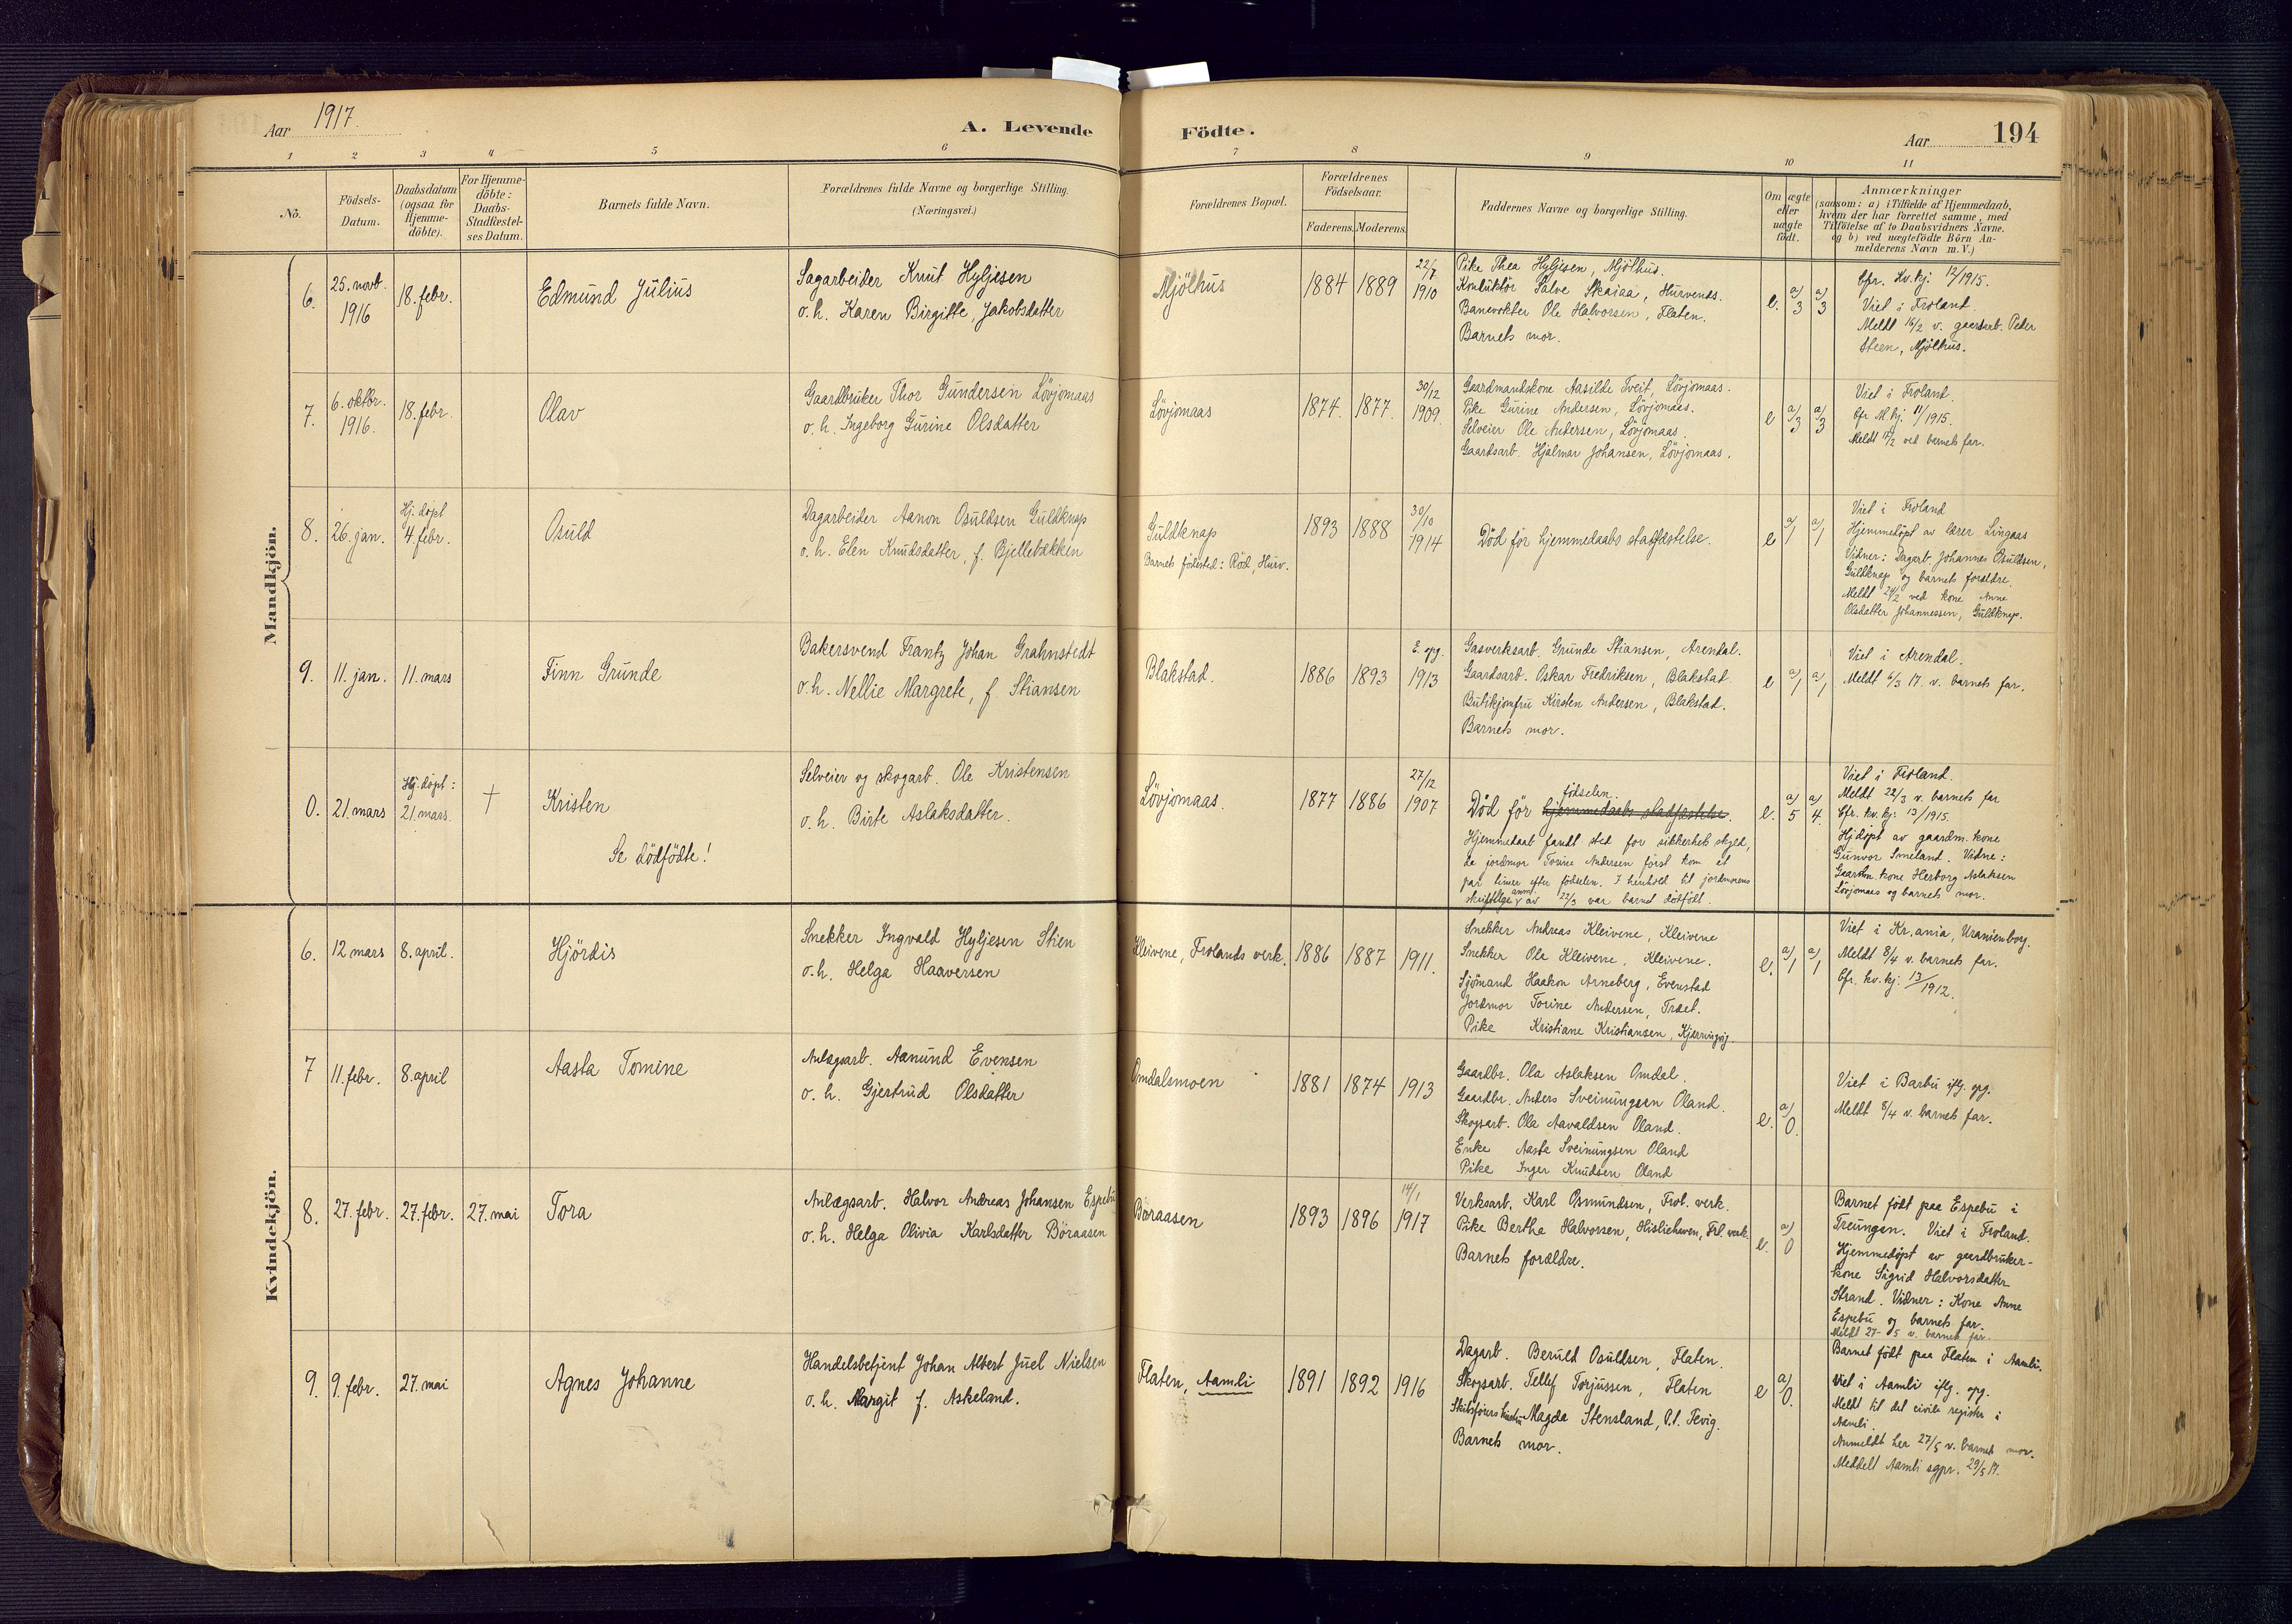 Aar 1917.
A. Levende Födte.
Aar 194
1 2 3 4 5 6 7 8 9 10 11
No.
Födsels-Datum.
Daabsdatum (ogsaa for Hjemme-döbte).
For Hjemme-döbte: Daabs-Stadfæstel-ses Datum.
Barnets fulde Navn.
Forældrenes fulde Navne og borgerlige Stilling.
(Næringsvei.)
Forældrenes Bopæl.
Forældrenes Födselsaar.
Faderens. Moderens.
Faddernes Navne og borgerlige Stilling.
Om ægte eller uægte födt.
Anmærkninger
(saasom: a) i Tilfælde af Hjemmedaab,
hvem der har forrettet samme, med
Tilföielse af to Daabsvidners Navne.
og b) ved uægtefödte Börn An-
melderens Navn m. V.)
Mandkjön.
6. 25. novb. 1916 18. febr. Edmund Julius
Sagarbeider Knut Hyljesen
o. h. Karen Birgitte, Jakobsdatter
Mjölhus 1884 1889 22/7 1910
Pike Thea Hyljesen, Mjölhus.
Konduktör Salve Skajaa, Hurvends.
Banevokter Ole Halvorsen, Flaten.
Barnets mor.
e. a/3 a/3
Cfr. Kv. kj. 12/1915.
Viet i Froland.
Meldt 16/2 v. gaardarb. Peder
Steen, Mjölhus.
7. 6. oktbr. 1916. 18. febr. Olav
Gaardbruker Thor Gundersen Lövjomaas
o. h. Ingeborg Gurine Olsdatter
Lövjomaas 1874. 1877. 30/12 1909.
Gaardmandskone Aasilde Tveit, Lövjomaas.
Pike Gurine Andersen, Lövjomaas.
Selveier Ole Andersen, Lövjomaas.
Gaardsarb. Hjalmar Johansen, Lövjomaas.
e a/3 a/3
Viet i Froland.
Cfr. M. kj. 11/1915.
Meldt 17/2 ved barnets far.
8. 26. jan. Hj. döpt 4 febr. Osuld
Dagarbeider Aanon Osuldsen Guldknap
o. h. Elen Knudsdatter, f. Bjellebækken
Guldknap
Barnets födested: Röd, Hurv.
1893 1888 30/10 1914
Död för hjemmedaabs stadfæstelse.
e a/1 a/1
Viet i Froland
Hjemmedöpt av lærer Lingaas
Vidner: Dagarb. Johannes Osuldsen,
Guldknap og barnets foreldre.
Meldt 24/2 ved kone Anne
Olsdatter Johannessen, Guldknap.
9. 11. jan. 11. mars Finn Grunde
Bakersvend Frantz Johan Grahnstedt
o. h. Nellie Margrete, f. Stiansen
Blakstad. 1886 1893 E. opg. 1913
Gasverksarb. Grunde Stiansen, Arendal.
Gaardsarb. Oskar Fredriksen, Blakstad
Butikjomfru Kirsten Andersen, Blakstad.
Barnets mor.
e a/1 a/1
Viet i Arendal.
Meldt 6/3 17. v. barnets far.
0. 21. mars Hj. döpt: 21. mars. † Kristen
Se dödfödte!
Selveier og skogarb. Ole Kristensen
o. h. Birte Aslaksdatter.
Lövjomaas. 1877 1886 27/12 1907
födselen.
Död för hjemmedaabs stadfæstelse.
Hjemmedaab fandt sted for sikkerhets skyld,
da jordmor Torine Andersen först kom et
par timer efter födselen. I henhold til jordmorens
skriftlige anm. av 22/3 var barnet dödfödt.
e. a/5 a/4.
Viet i Froland.
Meldt 22/3 v. barnets far
Cfr. kv. kj: 13/1915.
Hjdöpt av gaardm. kone
Gunvor Smeland. Vidne:
Gaardm. kone Herborg Aslaksen
Lövjomaas og barnets mor.
Kvindekjön.
6. 12 mars 8. april. Hjördis
Snekker Ingvald Hyljesen Stien
o. h. Helga Haaversen
Kleivene, Frolands verk. 1886 1887 1911.
Snekker Andreas Kleivene, Kleivene
Snekker Ole Kleivene, Kleivene.
Sjömand Haakon Arneberg, Evenstad
Jordmor Torine Andersen, Træet.
Pike Kristiane Kristiansen, Kjerringvig.
e. a/1 a/1
Viet i Kr.ania, Uranienborg.
Meldt 8/4 v. barnets far.
Cfr. kv. kj. 13/1912.
7 11. febr. 8. april Aasta Tomine
Anlægsarb. Aanund Evensen
o. h. Gjertrud Olsdatter
Omdalsmoen 1881 1874 1913
Gaardbr. Ola Aslaksen Omdal.
Gaardbr. Anders Sveinungsen Öland.
Skogsarb. Ola Aavaldsen Öland.
Enke Aaste Sveinungsen Öland
Pike Inger Knudsen Öland
e. a/0.
Viet i Barbu iflg. opg.
Meldt 8/4 v. barnets far.
8. 27. febr. 27. febr. 27. mai Tora
Anlægsarb. Halvor Andreas Johansen Espebu
o. h. Helga Olivia Karlsdatter Böraasen
Böraasen 1893 1896 14/1 1917
Verksarb. Karl Osmundsen, Frol. verk.
Pike Bertha Halvorsen, Hisliehaven, Frl. verk.
Barnets forældre.
e. a/0
Barnet födt paa Espebu i
Treungen. Viet i Froland.
Hjemmedöpt av gaardbruker-
kone Sigrid Halvorsdatter
Strand. Vidner: Kone Anne
Espebu og barnets far.
Meldt 27-5 v. barnets far.
9. 9. febr. 27. mai Agnes Johanne
Handelsbetjent Johan Albert Juel Nielsen
o. h. Margit f. Askeland.
Flaten, Aamli 1891 1892 1916
Dagarb. Beruld Osuldsen, Flaten.
Skogsarb. Tellef Torjussen, Flaten
Skibsförers hustru Magda Stensland, P.t. Tevig.
Barnets mor.
e a/0.
Barnet födt paa Flaten i Aamli.
Viet i Aamli iflg. opg.
Meldt til det civile register i
Aamli.
Anmeldt her 27/5 v. barnets mor.
Meddelt Aamli sgpr. 29/5 17.